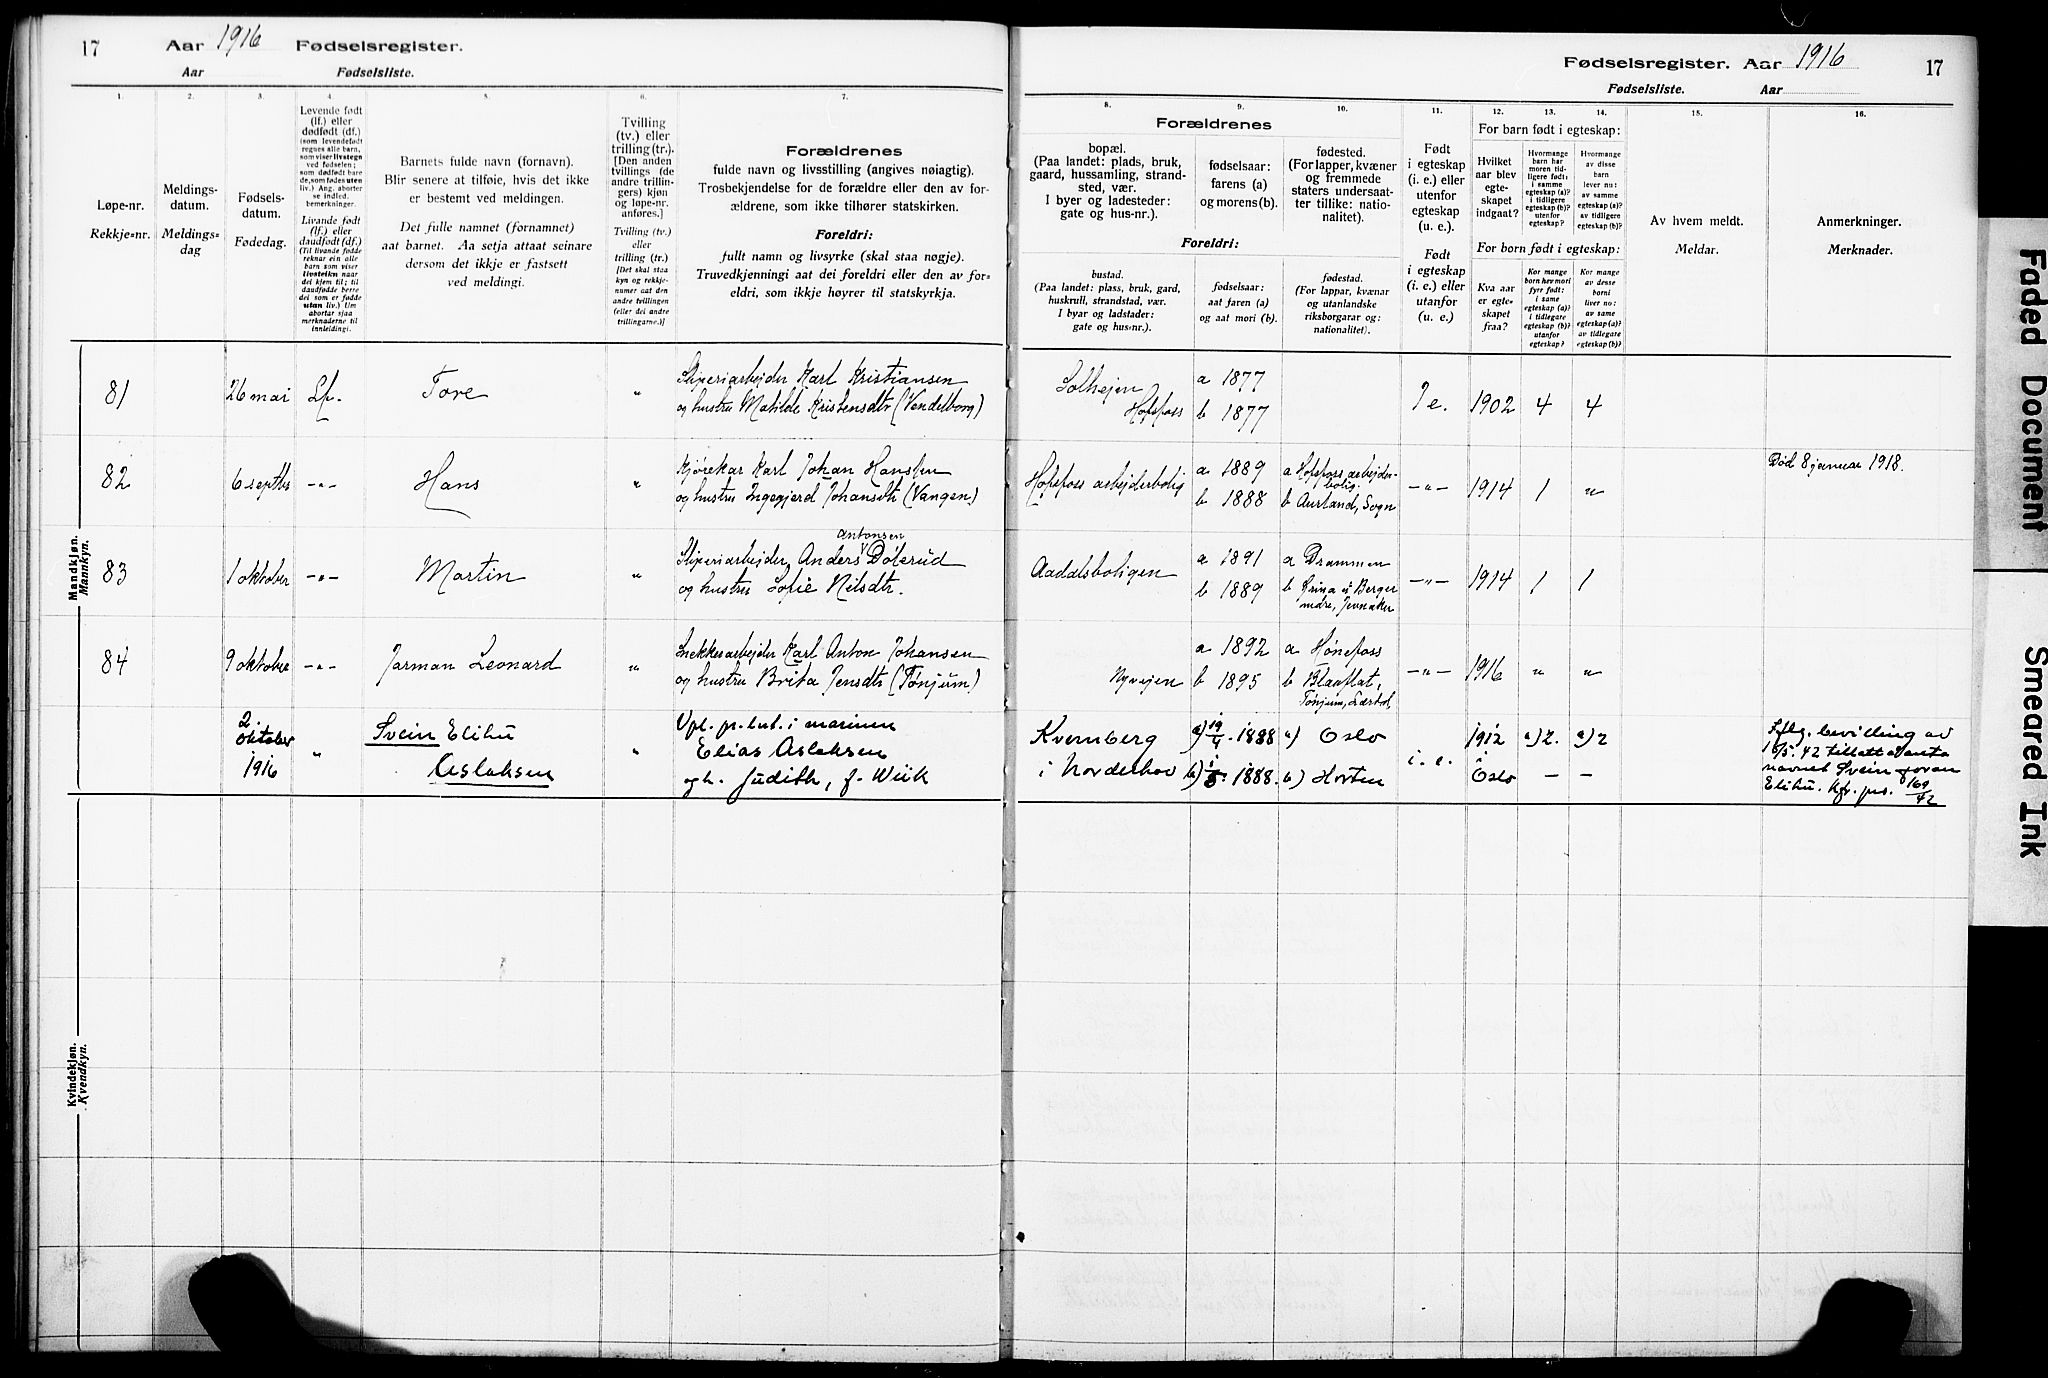 17 Aar 1916 Fødselsregister.
Aar Fødselsliste.
1.
Løpe-nr.
Rekkje-nr.
2.
Meldings-
datum.
Meldings-
dag
3.
Fødsels-
datum.
Fødedag.
4.
Levende født
(lf.) eller
dødfødt (df.)
(som levendefødt
regnes alle barn,
som viser livstegn
ved fødselen;
som dødfødt bare
de, som fødes uten
liv.) Ang. aborter
se indled.
bemerkninger.
Livande født
(lf.) eller
daudfødt (df.)
(Til livande fødde
reknar ein alle
barn som viser
livsteikn naar
dei kjem til; til
daudfødde berre
dei som er fødde
utan liv.) Um
abortar sjaa
merknaderne til
innleidingi.
5.
Barnets fulde navn (fornavn).
Blir senere at tilføie, hvis det ikke
er bestemt ved meldingen.
Det fulle namnet (fornamnet)
aat barnet. Aa setja attaat seinare
dersom det ikkje er fastsett
ved meldingi.
6.
Tvilling
(tv.) eller
trilling (tr.).
[Den anden
tvillings (de
andre trillin-
gers) kjøn
og løpe-nr.
anføres.]
Tvilling (tv.)
eller
trilling (tr.)
[Det skal staa
kyn og rekkje-
numer aat den
andre tvillingen
(eller dei andre
trillingarne.)]
7.
Forældrenes
fulde navn og livsstilling (angives nøiagtig).
Trosbekjendelse for de forældre eller den av for-
ældrene, som ikke tilhører statskirken.
Foreldri:
fullt namn og livsyrke (skal staa nøgje).
Truvedkjenningi aat dei foreldri eller den av for-
eldri, som ikkje høyrer til statskyrkja.
Fødselsregister. Aar 1916 17
Fødselsliste. Aar
Forældrenes
8.
bopæl.
(Paa landet: plads, bruk,
gaard, hussamling, strand-
sted, vær.
I byer og ladesteder:
gate og hus-nr.).
9.
fødselsaar:
farens (a)
og morens (b).
10.
fødested.
(For lapper, kvæner
og fremmede
staters undersaat-
ter tillike: natio-
nalitet).
Foreldri:
bustad.
(Paa landet: plass, bruk, gard,
huskrull, strandstad, vær.
I byar og ladstader:
gate og hus-nr.).
fødselsaar:
aat faren (a)
og aat mori (b).
fødestad.
(For lappar, kvænar
og utanlandske
riksborgarar og:
nationalitet).
11.
Født
i egteskap
(i. e.) eller
utenfor
egteskap
(u. e.).
Født
i egteskap
(i. e.) eller
utanfor
egteskap
(u. e.)
12. 13. 14.
For barn født i egteskap:
Hvilket
aar blev
egte-
skapet
indgaat?
Hvormange
barn har
moren tid-
ligere født:
i samme
egteskap (a)?
i tidligere
egteskap (b)?
utenfor
egteskap?
Hvormange
av disse
barn
lever nu:
av samme
egteskap (a)?
av tidligere
egteskap (b)?
For born født i egteskap:
Kva aar
er egte-
skapet
fraa?
Kor mange
born hev mori
fyrr født:
i same
egteskap (a)?
i tidlegare
egteskap (b)?
utanfor
egteskap?
Kor mange
av desse
borni
liver no:
av same
egteskap (a)?
av tidlegare
egteskap (b)?
15.
Av hvem meldt.
Meldar.
16.
Anmerkninger.
Merknader.
Mandkjøn.
Mannkyn.
81 26 mai Lf. Tore " Sliperiarbejder Karl Kristiansen
og hustru Matilde Kristensdtr (Vendelborg)
Solhejen
Hofsfoss
a 1877
b 1877
I e. 1902 4 4
82 6 septbr -"- Hans " Kjørekar Karl Johan Hansen
og hustru Ingegjerd Johansdtr (Vangen)
Hofsfoss arbejderbolig
a 1889
b 1888
a Hofsfoss arbejder-
bolig.
b Aurland, Sogn
-"- 1914 1 " Død 8 januar 1918.
83 1 oktober -"- Martin " Sliperiarbejder Anders Antonsen Dølerud
og hustru Sofie Nilsdtr.
Aadalsboligen
a 1891
b 1889
a Drammen
b
Jevnaker
-"- 1914 1 1
84 9 oktober -"- Jarman Leonard " Snekkerarbejder Karl Anton Johansen
og hustru Brita Jensdtr (Tønjum)
Nyvejen
a 1892
b 1895
a Hønefoss
b Blaaflat,
Tønjum, Lærdal
-"- 1916 " "
2
oktober
1916
" Svein Elihu
Aslaksen
" Vpl. pr.lut. i marinen
Elias Aslaksen
og h. Judith, f. Wiik
Kvernberg
i Norderhov
a) 19/4. 1888
b) 1888.
a) Oslo
b) Horten
i. e. 1912
Oslo
a) 2. a) 2
— —
Iflg. bevilling av
18/5. 42 tillatt aa anta
navnet Svein foran
Elihu. Kfr. jus. 169/42
Kvindekjøn.
Kvendkyn.
Faded Document
Smeared Ink